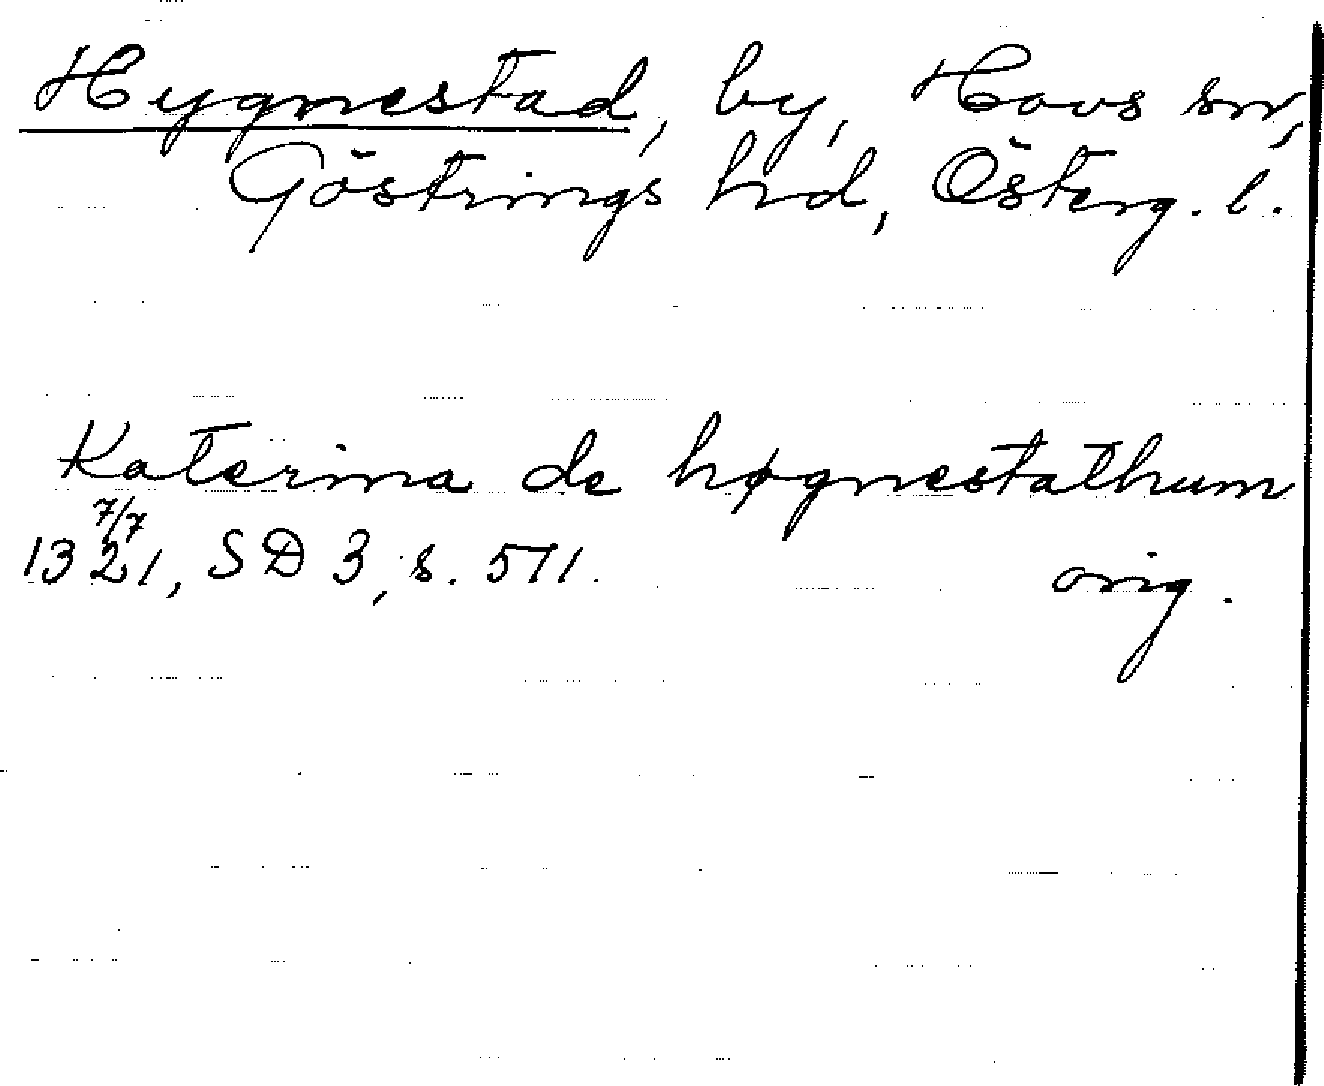 Hygnestad, by, Hovs sn,
Göstrings hd, Österg. l.
Katerina de høgnestathum
7/7
1321, SD 3, s. 571. orig.